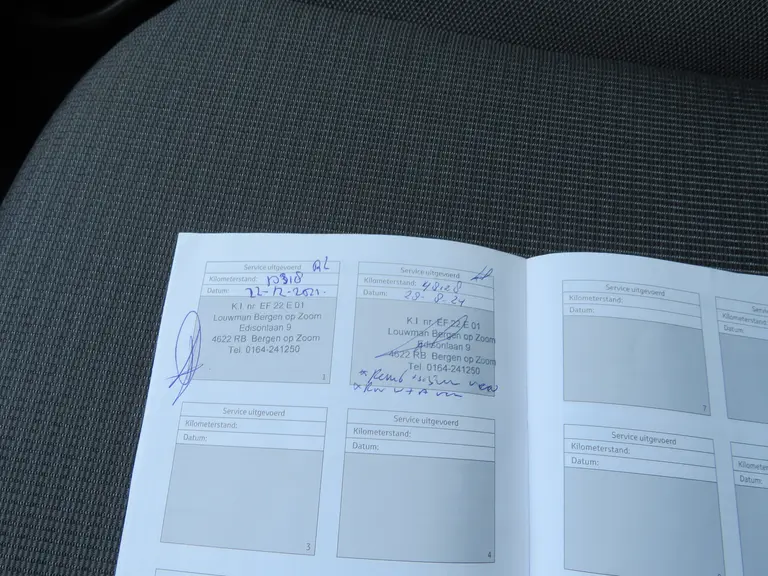 Service uitgevoerd
Kilometerstand:
Datum: 22-12-2021
K.I nr EF 22 E 01
Louwman Bergen op Zoom
Edisonlaan 9
4622 RB Bergen op Zoom
Tel. 0164-241250
1
Service uitgevoerd
Kilometerstand:
Datum: 28-8-24
K.I nr EF 22 E 01
Louwman Bergen op Zoom
Edisonlaan 9
4622 RB Bergen op Zoom
Tel. 0164-241250
Service uitgevoerd
Kilometerstand:
Datum:
3
Service uitgevoerd
Kilometerstand:
Datum:
4
Service uitgevoerd
Kilometerstand:
Datum:
7
Service uitgevoerd
Kilometerstand:
Datum:
Datum: